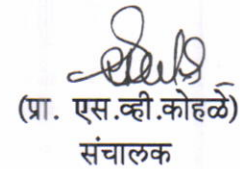 (प्रा. एस.व्ही.कोहळे)
संचालक